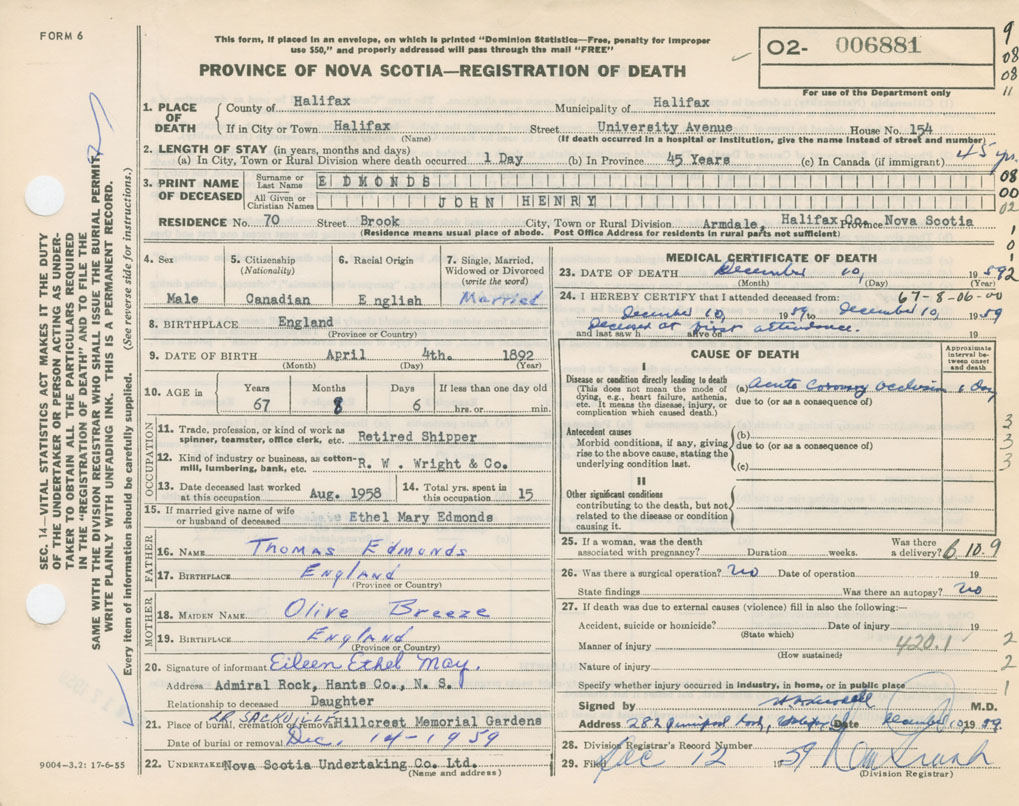 FORM 6
This form, if placed in an envelope, on which is printed "Dominion Statistics—Free, penalty for improper
use $50," and properly addressed will pass through the mail "FREE"
PROVINCE OF NOVA SCOTIA—REGISTRATION OF DEATH
O2- 006881
For use of the Department only
9
08
08
11
1. PLACE OF DEATH
County of Halifax Municipality of Halifax
If in City or Town Halifax Street University Avenue House No. 154
(Name) (If death occurred in a hospital or institution, give the name instead of street and number)
2. LENGTH OF STAY (in years, months and days)
(a) In City, Town or Rural Division where death occurred 1 Day (b) In Province 45 Years (c) In Canada (if immigrant) 45 yrs.
3. PRINT NAME OF DECEASED
Surname or Last Name EDMONDS
All Given or Christian Names JOHN HENRY
08
00
02
RESIDENCE No. 70 Street Brook City, Town or Rural Division Armdale, Halifax Co. Province Nova Scotia
(Residence means usual place of abode. Post Office Address for residents in rural parts not sufficient)
4. Sex
Male
5. Citizenship
(Nationality)
Canadian
6. Racial Origin
English
7. Single, Married, Widowed or Divorced
(write the word)
Married
8. BIRTHPLACE England
(Province or Country)
9. DATE OF BIRTH April 4th. 1892
(Month) (Day) (Year)
10. AGE in
Years Months Days If less than one day old
67 8 6 hrs. or min.
OCCUPATION
11. Trade, profession, or kind of work as
spinner, teamster, office clerk, etc. Retired Shipper
12. Kind of industry or business, as cotton-
mill, lumbering, bank, etc. R. W. Wright & Co.
13. Date deceased last worked
at this occupation Aug. 1958
14. Total yrs. spent in
this occupation 15
15. If married give name of wife
or husband of deceased Ethel Mary Edmonds
FATHER
16. NAME Thomas Edmonds
17. BIRTHPLACE England
(Province or Country)
MOTHER
18. MAIDEN NAME Olive Breeze
19. BIRTHPLACE England
(Province or Country)
20. Signature of informant Eileen Ethel May.
Address Admiral Rock, Hants Co., N. S.
Relationship to deceased Daughter
21. Place of burial, cremation or removal Hillcrest Memorial Gardens
SACKVILLE
Date of burial or removal Dec. 14-1959
22. UNDERTAKER Nova Scotia Undertaking Co. Ltd.
(Name and address)
MEDICAL CERTIFICATE OF DEATH
23. DATE OF DEATH December 10, 1959
(Month) (Day) (Year)
67-8-06-00
24. I HEREBY CERTIFY that I attended deceased from:
December 10, 1959, to December 10, 1959
and last saw h alive on 19
Deceased at first attendance.
CAUSE OF DEATH
Approximate interval between onset and death
I
Disease or condition directly leading to death
(This does not mean the mode of
dying, e.g., heart failure, asthenia,
etc. It means the disease, injury, or
complication which caused death.)
(a) Acute Coronary Occlusion 1 day
due to (or as a consequence of)
Antecedent causes
Morbid conditions, if any, giving
rise to the above cause, stating the
underlying condition last.
(b)
due to (or as a consequence of)
(c)
3
3
3
II
Other significant conditions
contributing to the death, but not
related to the disease or condition
causing it.
25. If a woman, was the death Was there
associated with pregnancy? Duration weeks. a delivery? 6.10.9
26. Was there a surgical operation? No Date of operation 19
State findings Was there an autopsy? No
27. If death was due to external causes (violence) fill in also the following:—
Accident, suicide or homicide? Date of injury 19
(State which)
Manner of injury 420.1
(How sustained)
Nature of injury
2
2
1
Specify whether injury occurred in industry, in home, or in public place
Signed by M.D.
Address 282 Date December 10, 1959.
28. Division Registrar's Record Number
29. Filed Dec 12 1959
(Division Registrar)
SEC. 14—VITAL STATISTICS ACT MAKES IT THE DUTY
OF THE UNDERTAKER OR PERSON ACTING AS UNDER-
TAKER TO OBTAIN ALL THE PARTICULARS REQUIRED
IN THE "REGISTRATION OF DEATH" AND TO FILE THE
SAME WITH THE DIVISION REGISTRAR WHO SHALL ISSUE THE BURIAL PERMIT.
WRITE PLAINLY WITH UNFADING INK. THIS IS A PERMANENT RECORD.
Every item of information should be carefully supplied. (See reverse side for instructions.)
9004-3.2: 17-6-55